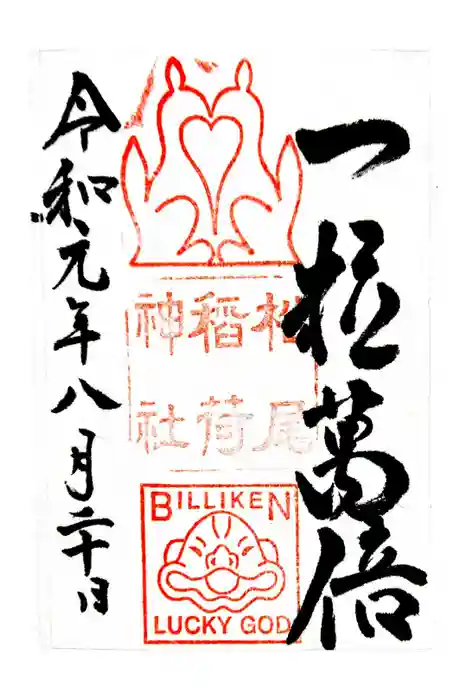 一粒萬倍
松尾
稲荷
神社
BILLIKEN
LUCKY GOD
令和元年八月二十日